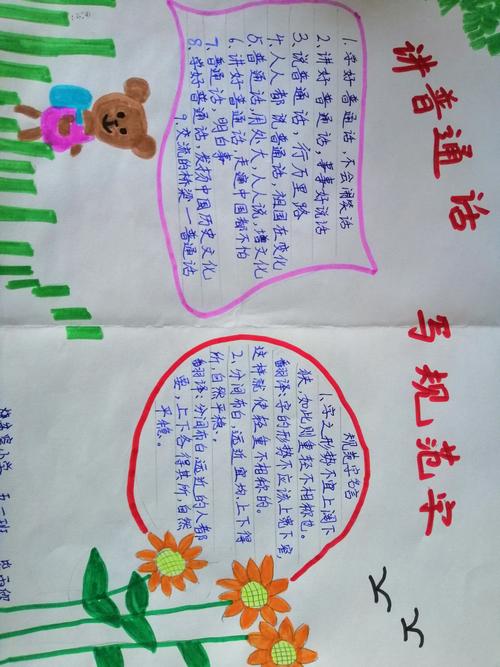 讲普通话 写规范字
1. 学好普通话,不会闹笑话
2. 讲好普通话,事事好说话
3. 说普通话,行万里路
4. 人人都说普通话,祖国在变化
5 普通话用处大,人人说,增文化
6. 讲好普通话,走遍中国都不怕
7. 普通话,明白事
8. 学好普通话,发扬中国历史文化
9. 交流的桥梁一普通话
规范字名言
1. 字之形势不宜上阔下
狭,如此则重轻不相称也。
翻译:字的形势不应该上宽下窄,
这样就使轻重不相称的。
2、分间布白,远近宜均,上下得
所,自然平稳、。
翻译:分间布白远近的人都
要,上下各得其所,自然
平稳。
小学 五二班